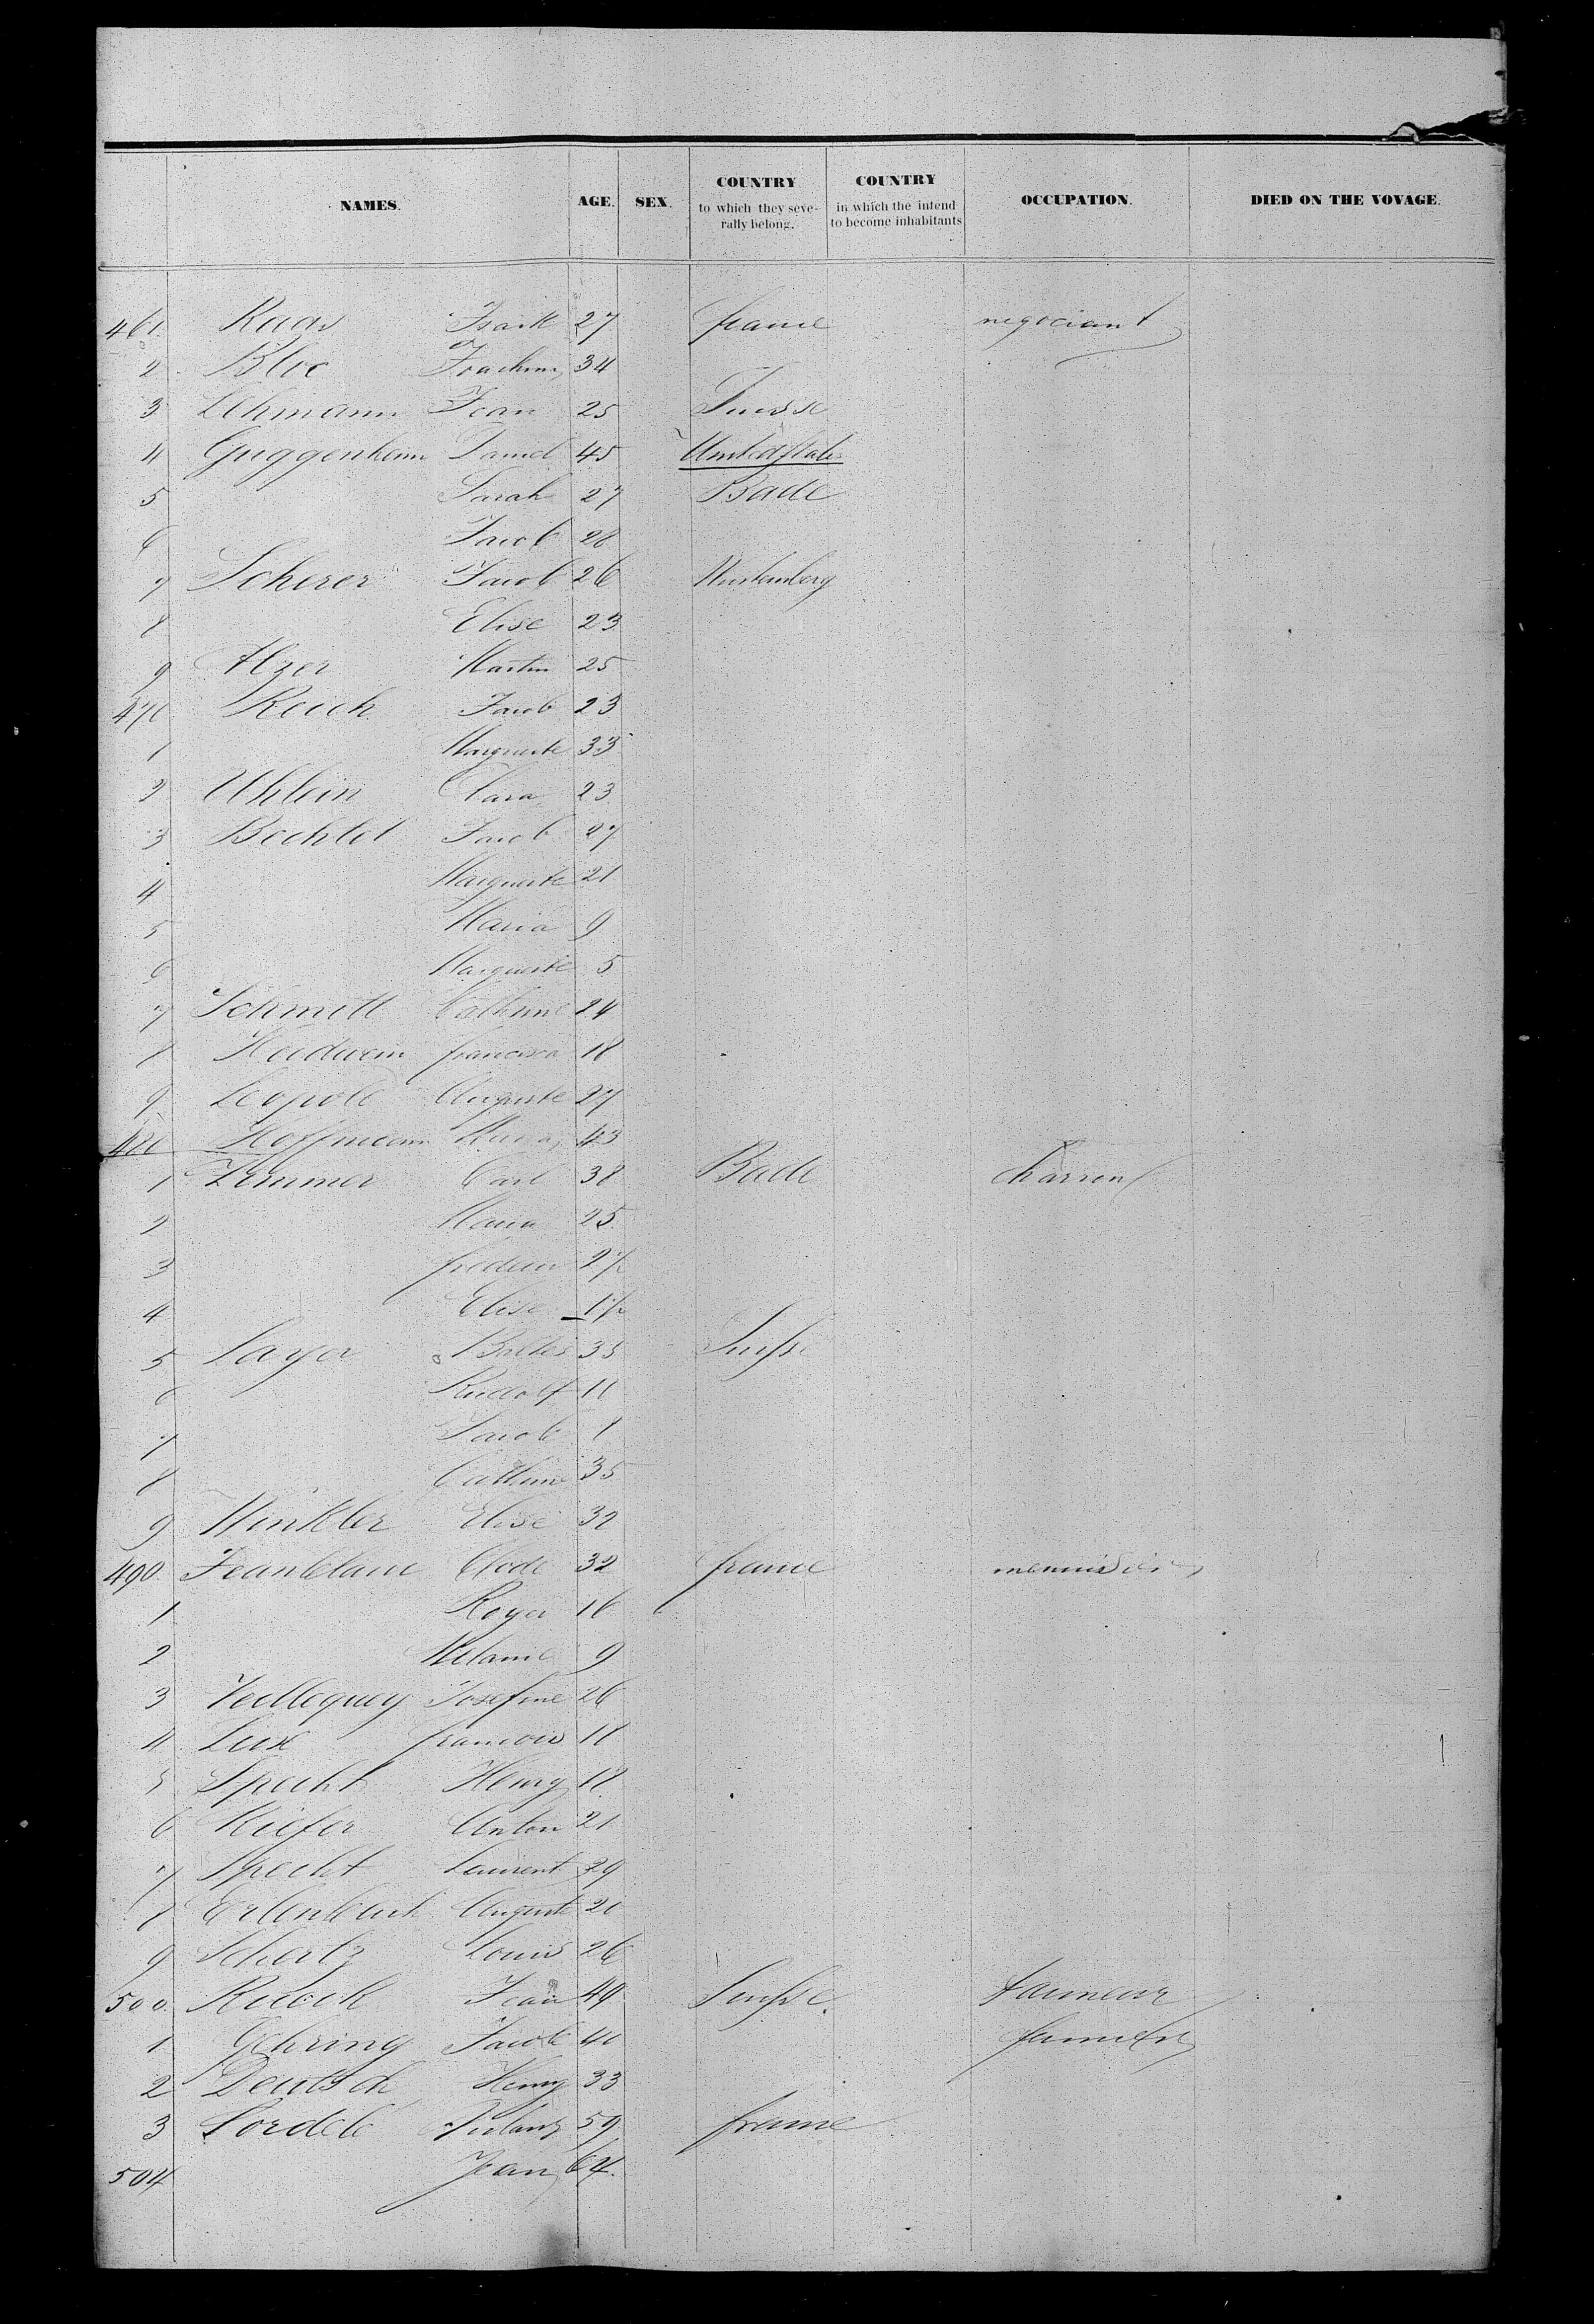 NAMES. AGE. SEX. COUNTRY to which they seve- rally belong. COUNTRY in which the intend to become inhabitants OCCUPATION. DIED ON THE VOYAGE.
461. Kaas Isaik 27 france negociant
2 Bloc Joachim 34
3 Lehmann Jean 25 Suisse
4 Guggenheim Daniel 45 United States
5 Sarah 27 Bade
6 Jacob 28
7 Scherer Jacob 26 Wurtemberg
8 Elise 23
9 Martin 25
470 Koch Jacob 23
1 Marguerite 33
2 Uhlein Clara 23
3 Bechtel Jacob 27
4 Marguerite 21
5 Maria 9
6 Marguerite 5
7 Schmitt Catherine 24
8 francisca 18
9 Leopold Auguste 27
480 Hoffmann Maria 43
1 Zimmer Carl 38 Bade Charron
2 Maria 25
3 2 1/2
4 Elise 1 1/2
5 35 Suisse
6 Rudolf 11
7 Jacob 8
8 Catherine 35
9 Winkler Elise 32
490. Jeanblanc Clode 32 france menuisier
1 Roger 16
2 Melanie 9
3 Josefine 26
4 Lux francois 18
5 Specht Henry 18
6 Kiefer Anton 21
7 Specht Laurent 29
8 Erlenbach Auguste 20
9 Schertz Louis 26
500. Jean 49 Suisse. tanneur
1 Gehring Jacob 40
2 Deutsch Henry 33
3 59 france
504 Jean 64.